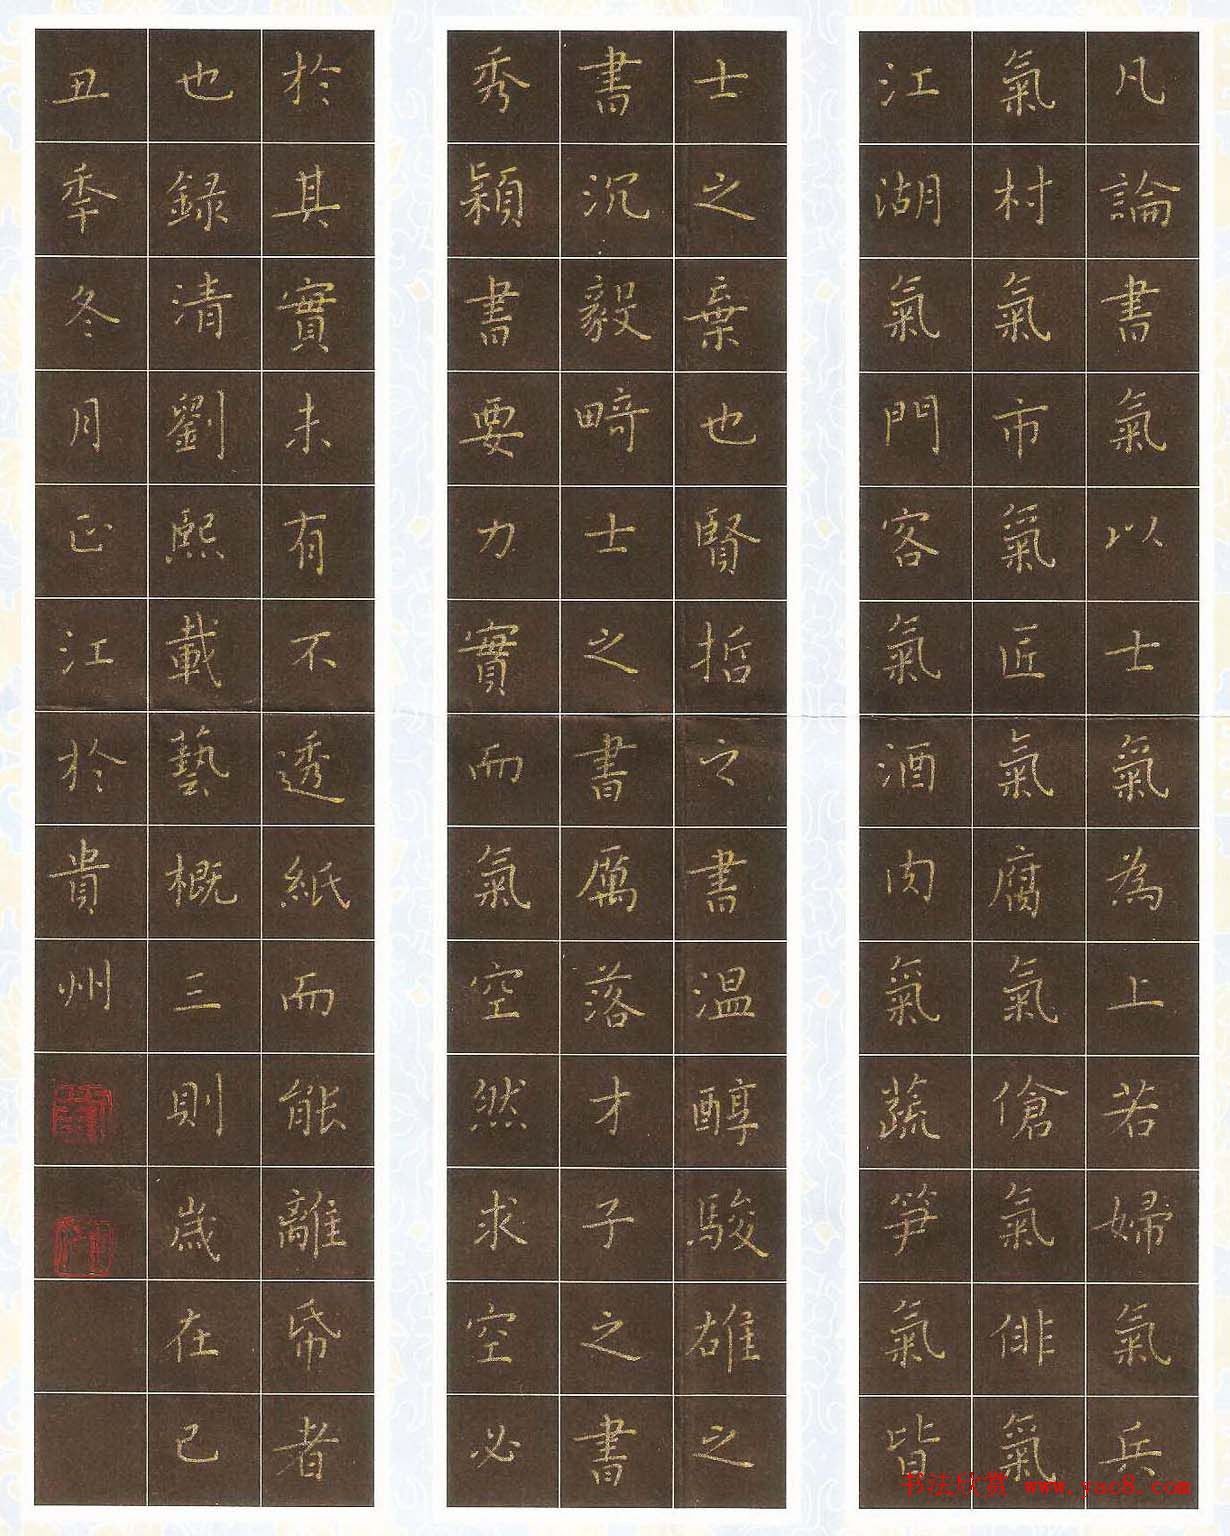 凡論書氣以士氣為上若婦氣兵
氣村氣市氣匠氣腐氣傖氣俳氣
江湖氣門客氣酒肉氣蔬笋氣皆
士之棄也賢哲之書温醇駿雄之
書沉毅畸士之書厲落才子之書
秀穎書要力實而氣空然求空必
於其實未有不透紙而能離帋者
也録清劉熙載藝概三則歲在己
丑秊冬月正江於貴州
书法欣赏 www.yac8.com